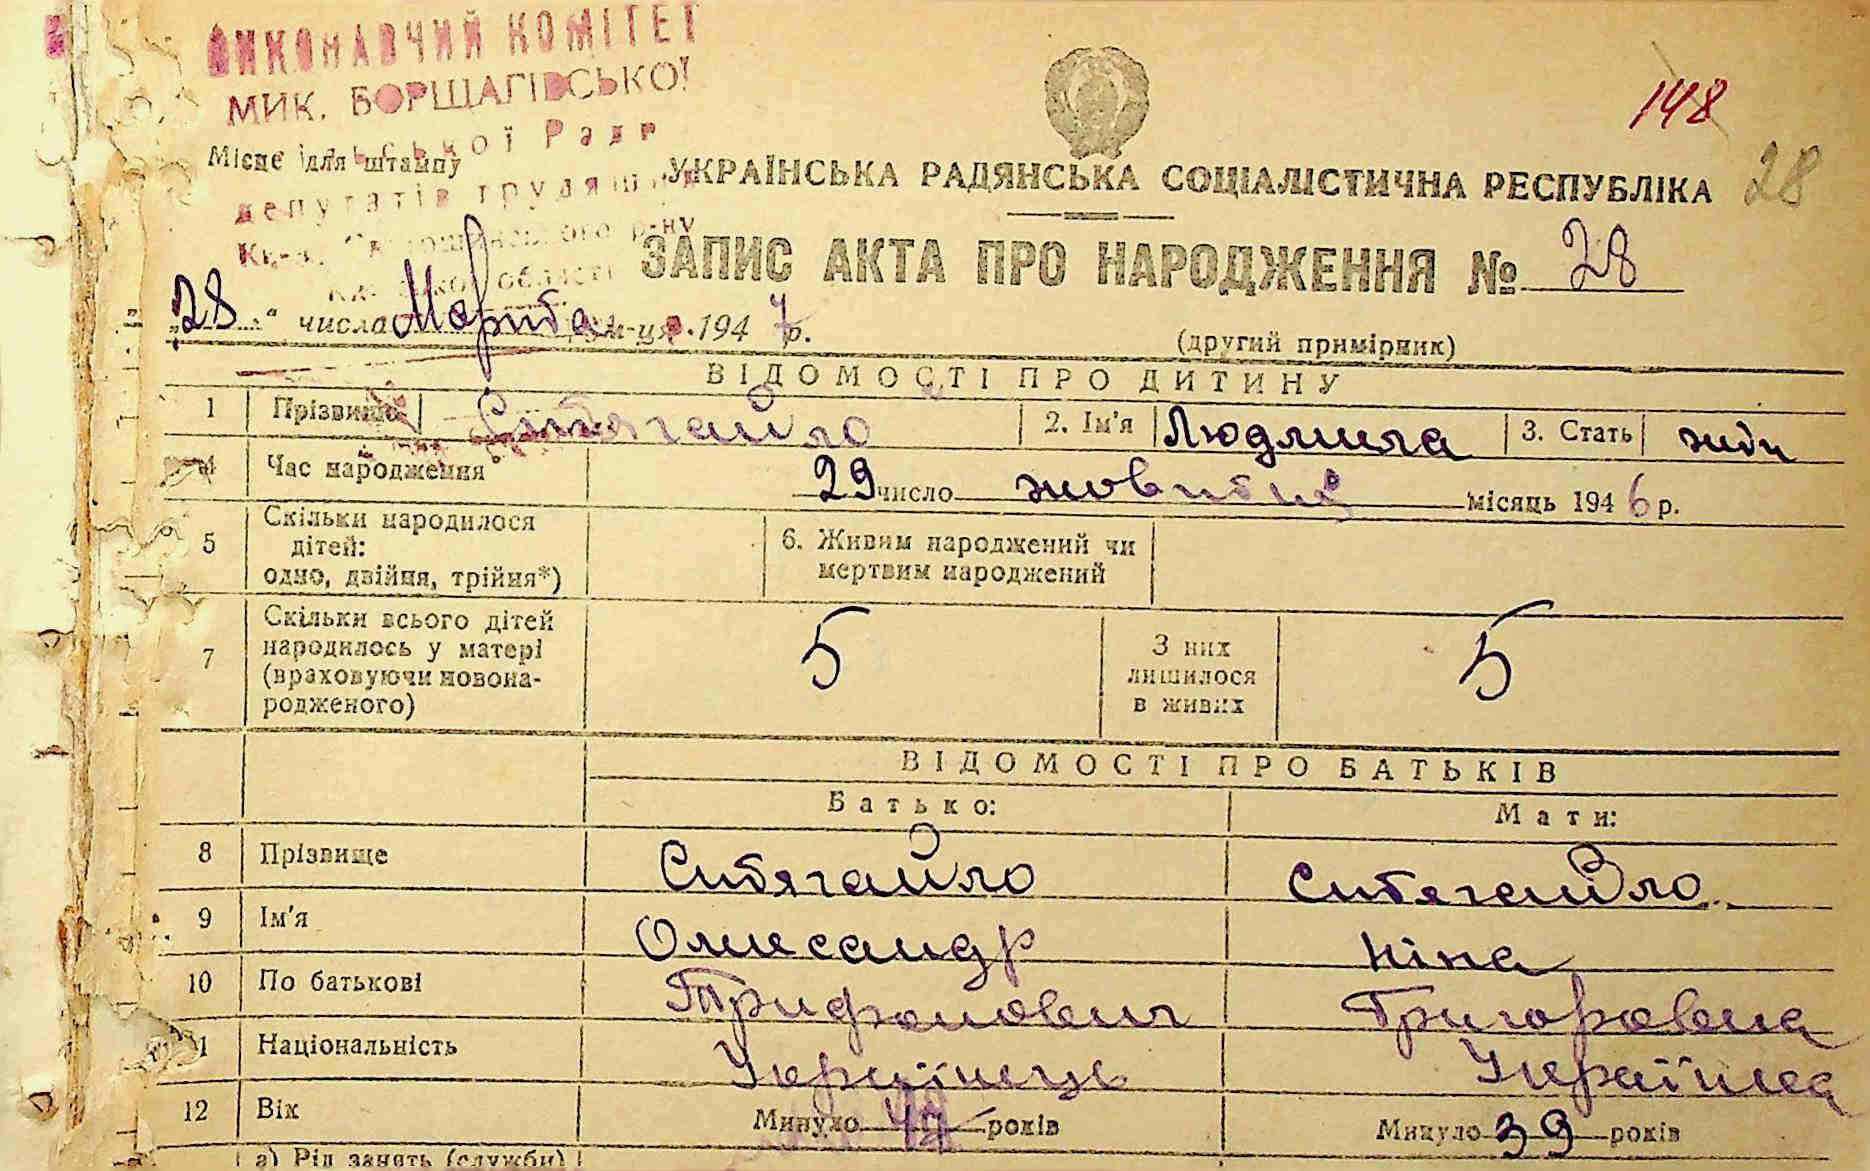 ВИКОНАВЧИЙ КОМІТЕТ
МИК. БОРЩАГІВСЬКОЇ
148
ської Ради
Місце для штампу
УКРАЇНСЬКА РАДЯНСЬКА СОЦІАЛІСТИЧНА РЕСПУБЛІКА
28
депутатів трудящих
р-ну
області
ЗАПИС АКТА ПРО НАРОДЖЕННЯ № 28
„28“ числа Марта м-ця 1947 р.
(другий примірник)
ВІДОМОСТІ ПРО ДИТИНУ
1 Прізвище Ситягайло 2. Ім'я Людмила 3. Стать жін
4 Час народження 29 число жовтня місяць 1946 р.
5 Скільки народилося
дітей:
одно, двійня, трійня*)
6. Живим народжений чи
мертвим народжений
7 Скільки всього дітей
народилось у матері
(враховуючи новона-
родженого)
5
З них
лишилося
в живих
5
ВІДОМОСТІ ПРО БАТЬКІВ
Батько: Мати:
8 Прізвище Ситягайло Ситягайло
9 Ім'я Олександр Ніна
10 По батькові Трифонович Григоровна
11 Національність Українець Українка
12 Вік Минуло 47 років Минуло 39 років
а) Рід занять (служби)